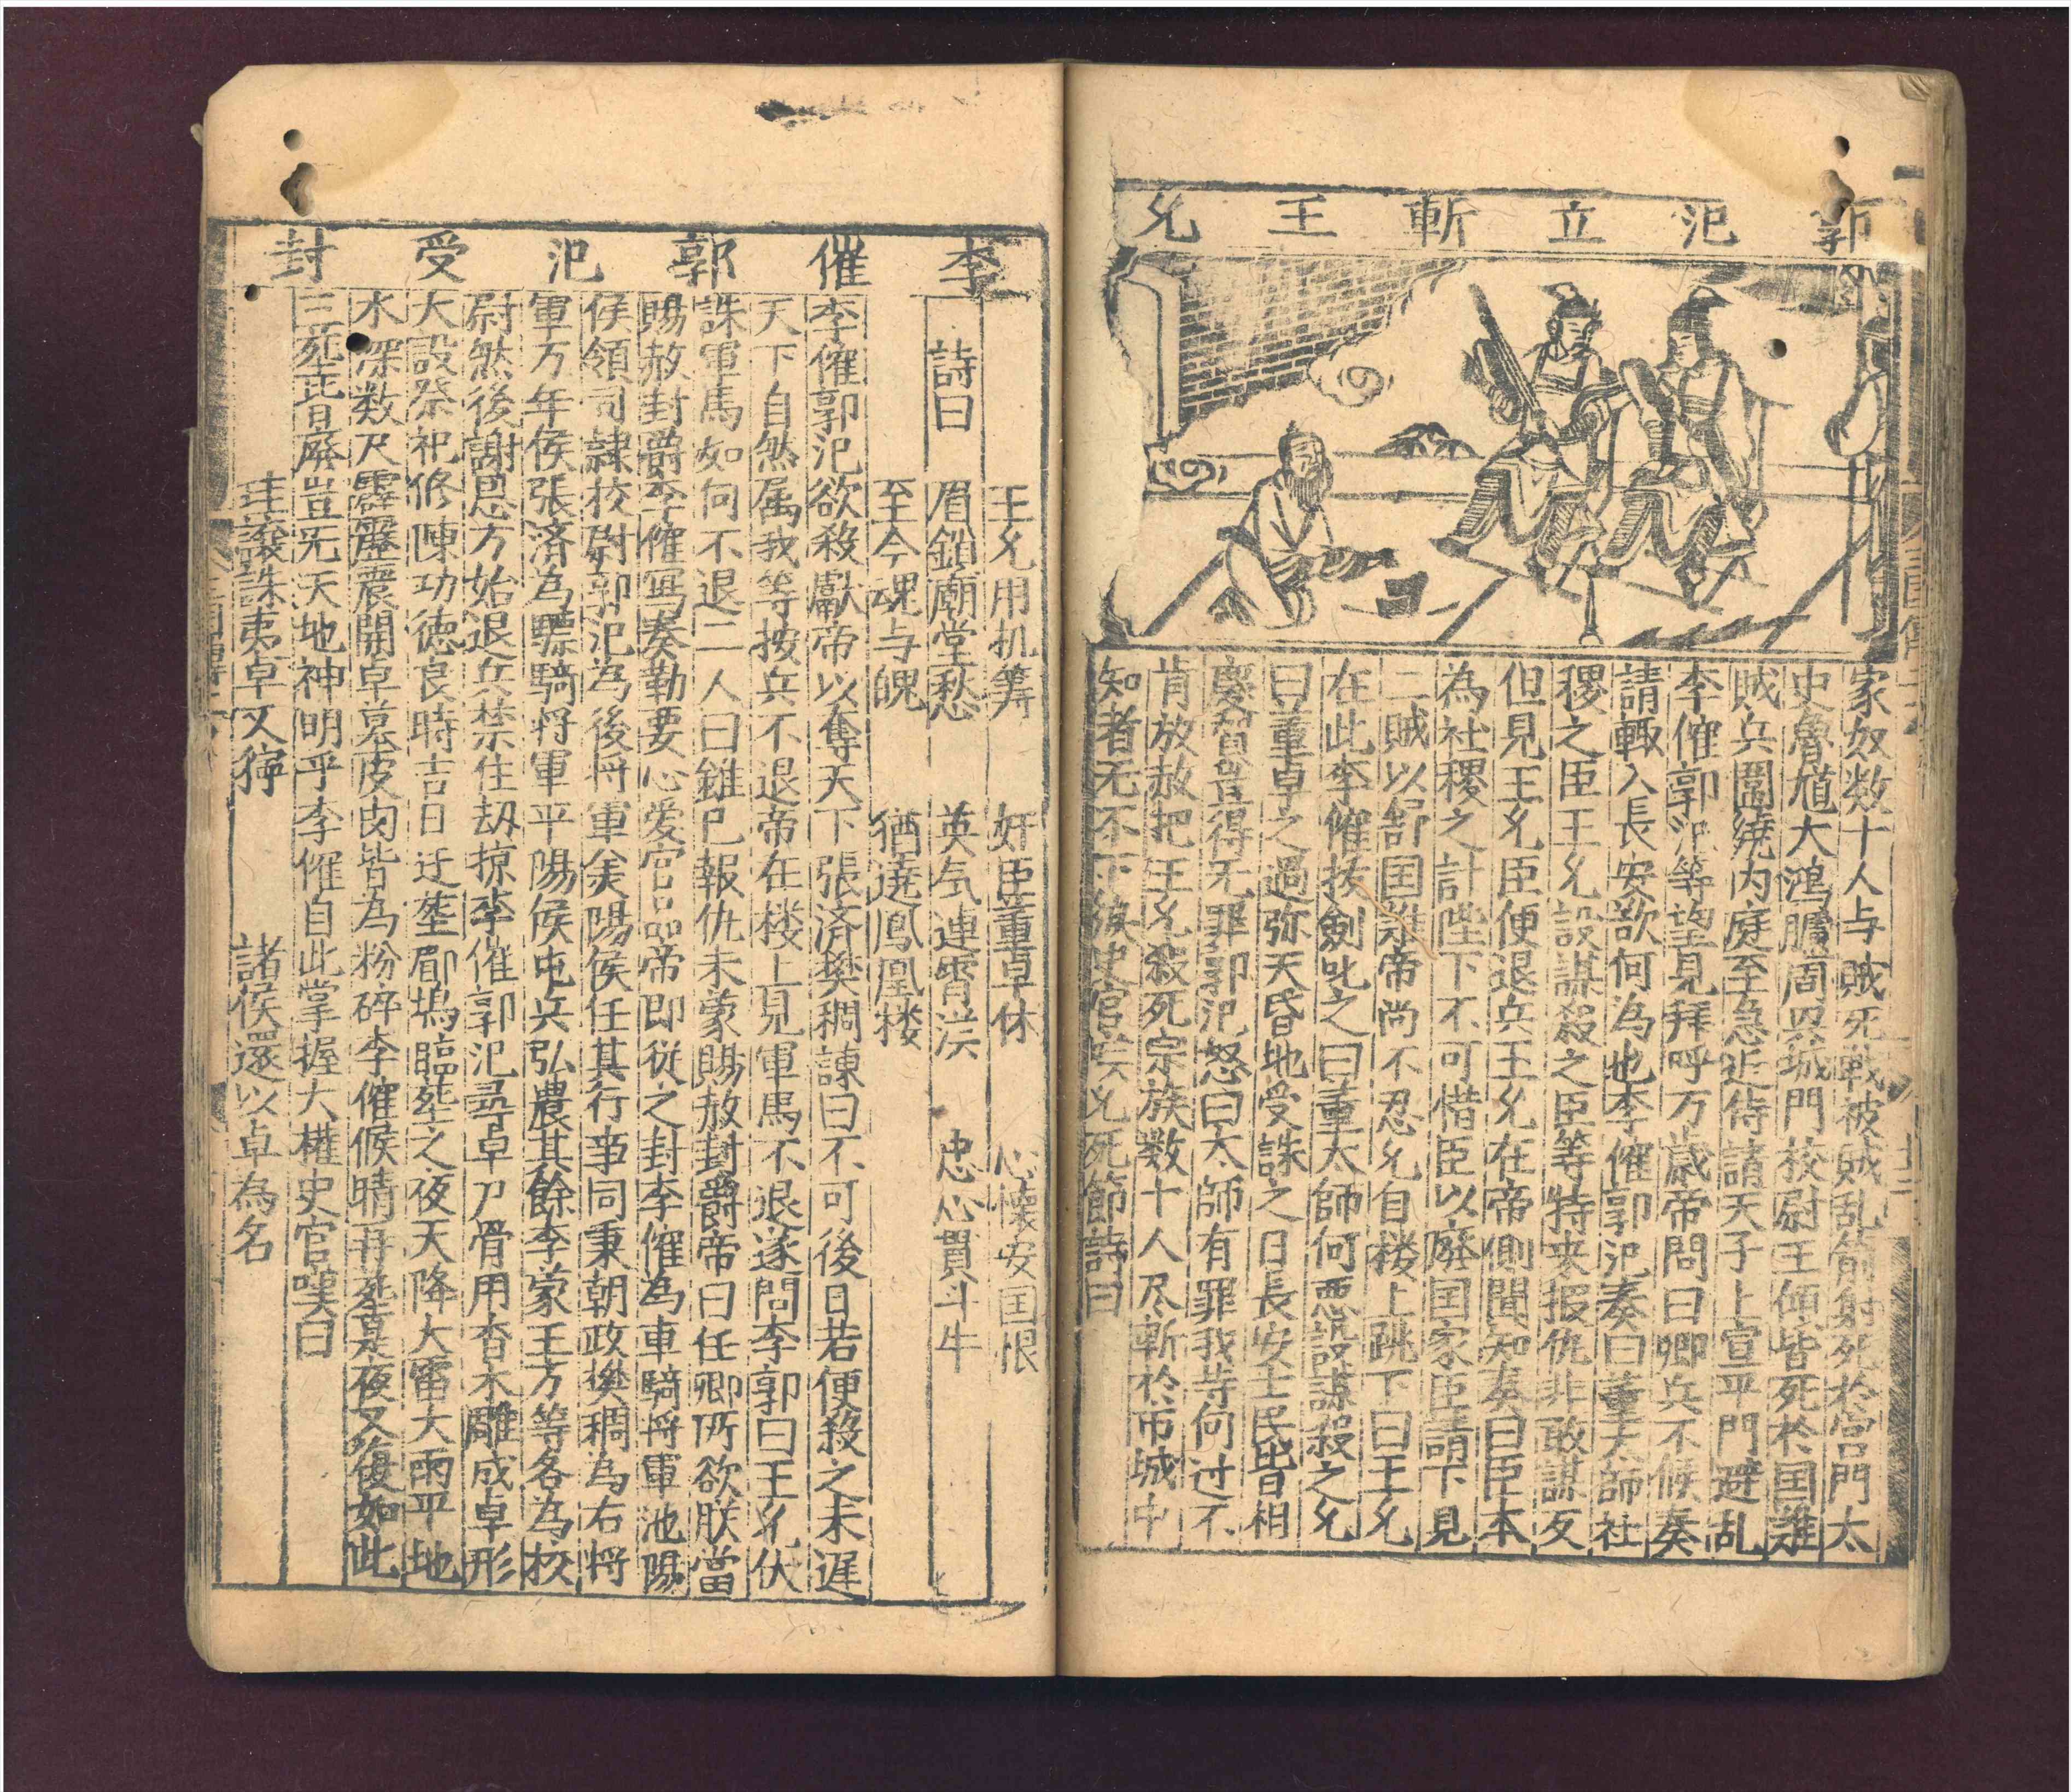 郭汜立斬王允
家奴数十人与賊死戦被賊乱箭射死於宫門太
史魯馗大鴻臚周奐城門校尉王傾皆死於国难
賊兵圍繞内庭至急近侍諸天子上宣平門避乱
李傕郭汜等望見拜呼万歳帝問曰卿兵不候奏
請輙入長安欲何為也李傕郭汜奏曰董太師社
稷之臣王允設謀殺之臣等特来报仇非敢謀反
但見王允臣便退兵王允在帝側聞知奏曰臣本
為社稷之計陛下不可惜臣以廢国家臣請下見
二賊以舒国难帝尚不忍允自楼上跳下曰王允
在此李傕按劍叱之曰董太師何惡設謀殺之允
曰董卓之過弥天昏地受誅之日長安士民皆相
慶賀豈得无罪郭汜怒曰太師有罪我等何过不
肯放赦把王允殺死宗族数十人尽斬於市城中
知者无不下淚史官 允死節詩曰
李傕郭汜受封
王允用机籌 奸臣董卓休 心懷安国恨
詩曰 眉鎖廟堂愁 英気連霄漢 忠心貫斗牛
至今魂与魄 猶遶鳳凰楼
李傕郭汜欲殺獻帝以奪天下張済樊稠諌曰不可後日若便殺之未遲
天下自然属我等按兵不退帝在楼上見軍馬不退遂問李郭曰王允伏
誅軍馬如何不退二人曰雖已報仇未蒙賜赦封爵帝曰任卿所欲朕當
賜赦封爵李傕写奏勒要心爱官品帝即従之封李傕為車騎将軍池陽
侯領司隷校尉郭汜為後将軍美陽侯任其行事同秉朝政樊稠為右将
軍万年侯張済為驃騎将軍平陽侯屯兵弘農其餘李蒙王方等各為校
尉然後謝恩方始退兵禁住劫掠李傕郭汜尋卓尸骨用香木雕成卓形
大設祭祀修陳功德良時吉日迁塟郿塢臨塟之夜天降大雷大雨平地
水深数尺霹靂震開卓墓皮肉皆為粉碎李傕候晴再塟是夜又復如此
三塟皆廢豈无天地神明乎李傕自此掌握大權史官嘆曰
珪誅夷卓又 諸侯還以卓為名